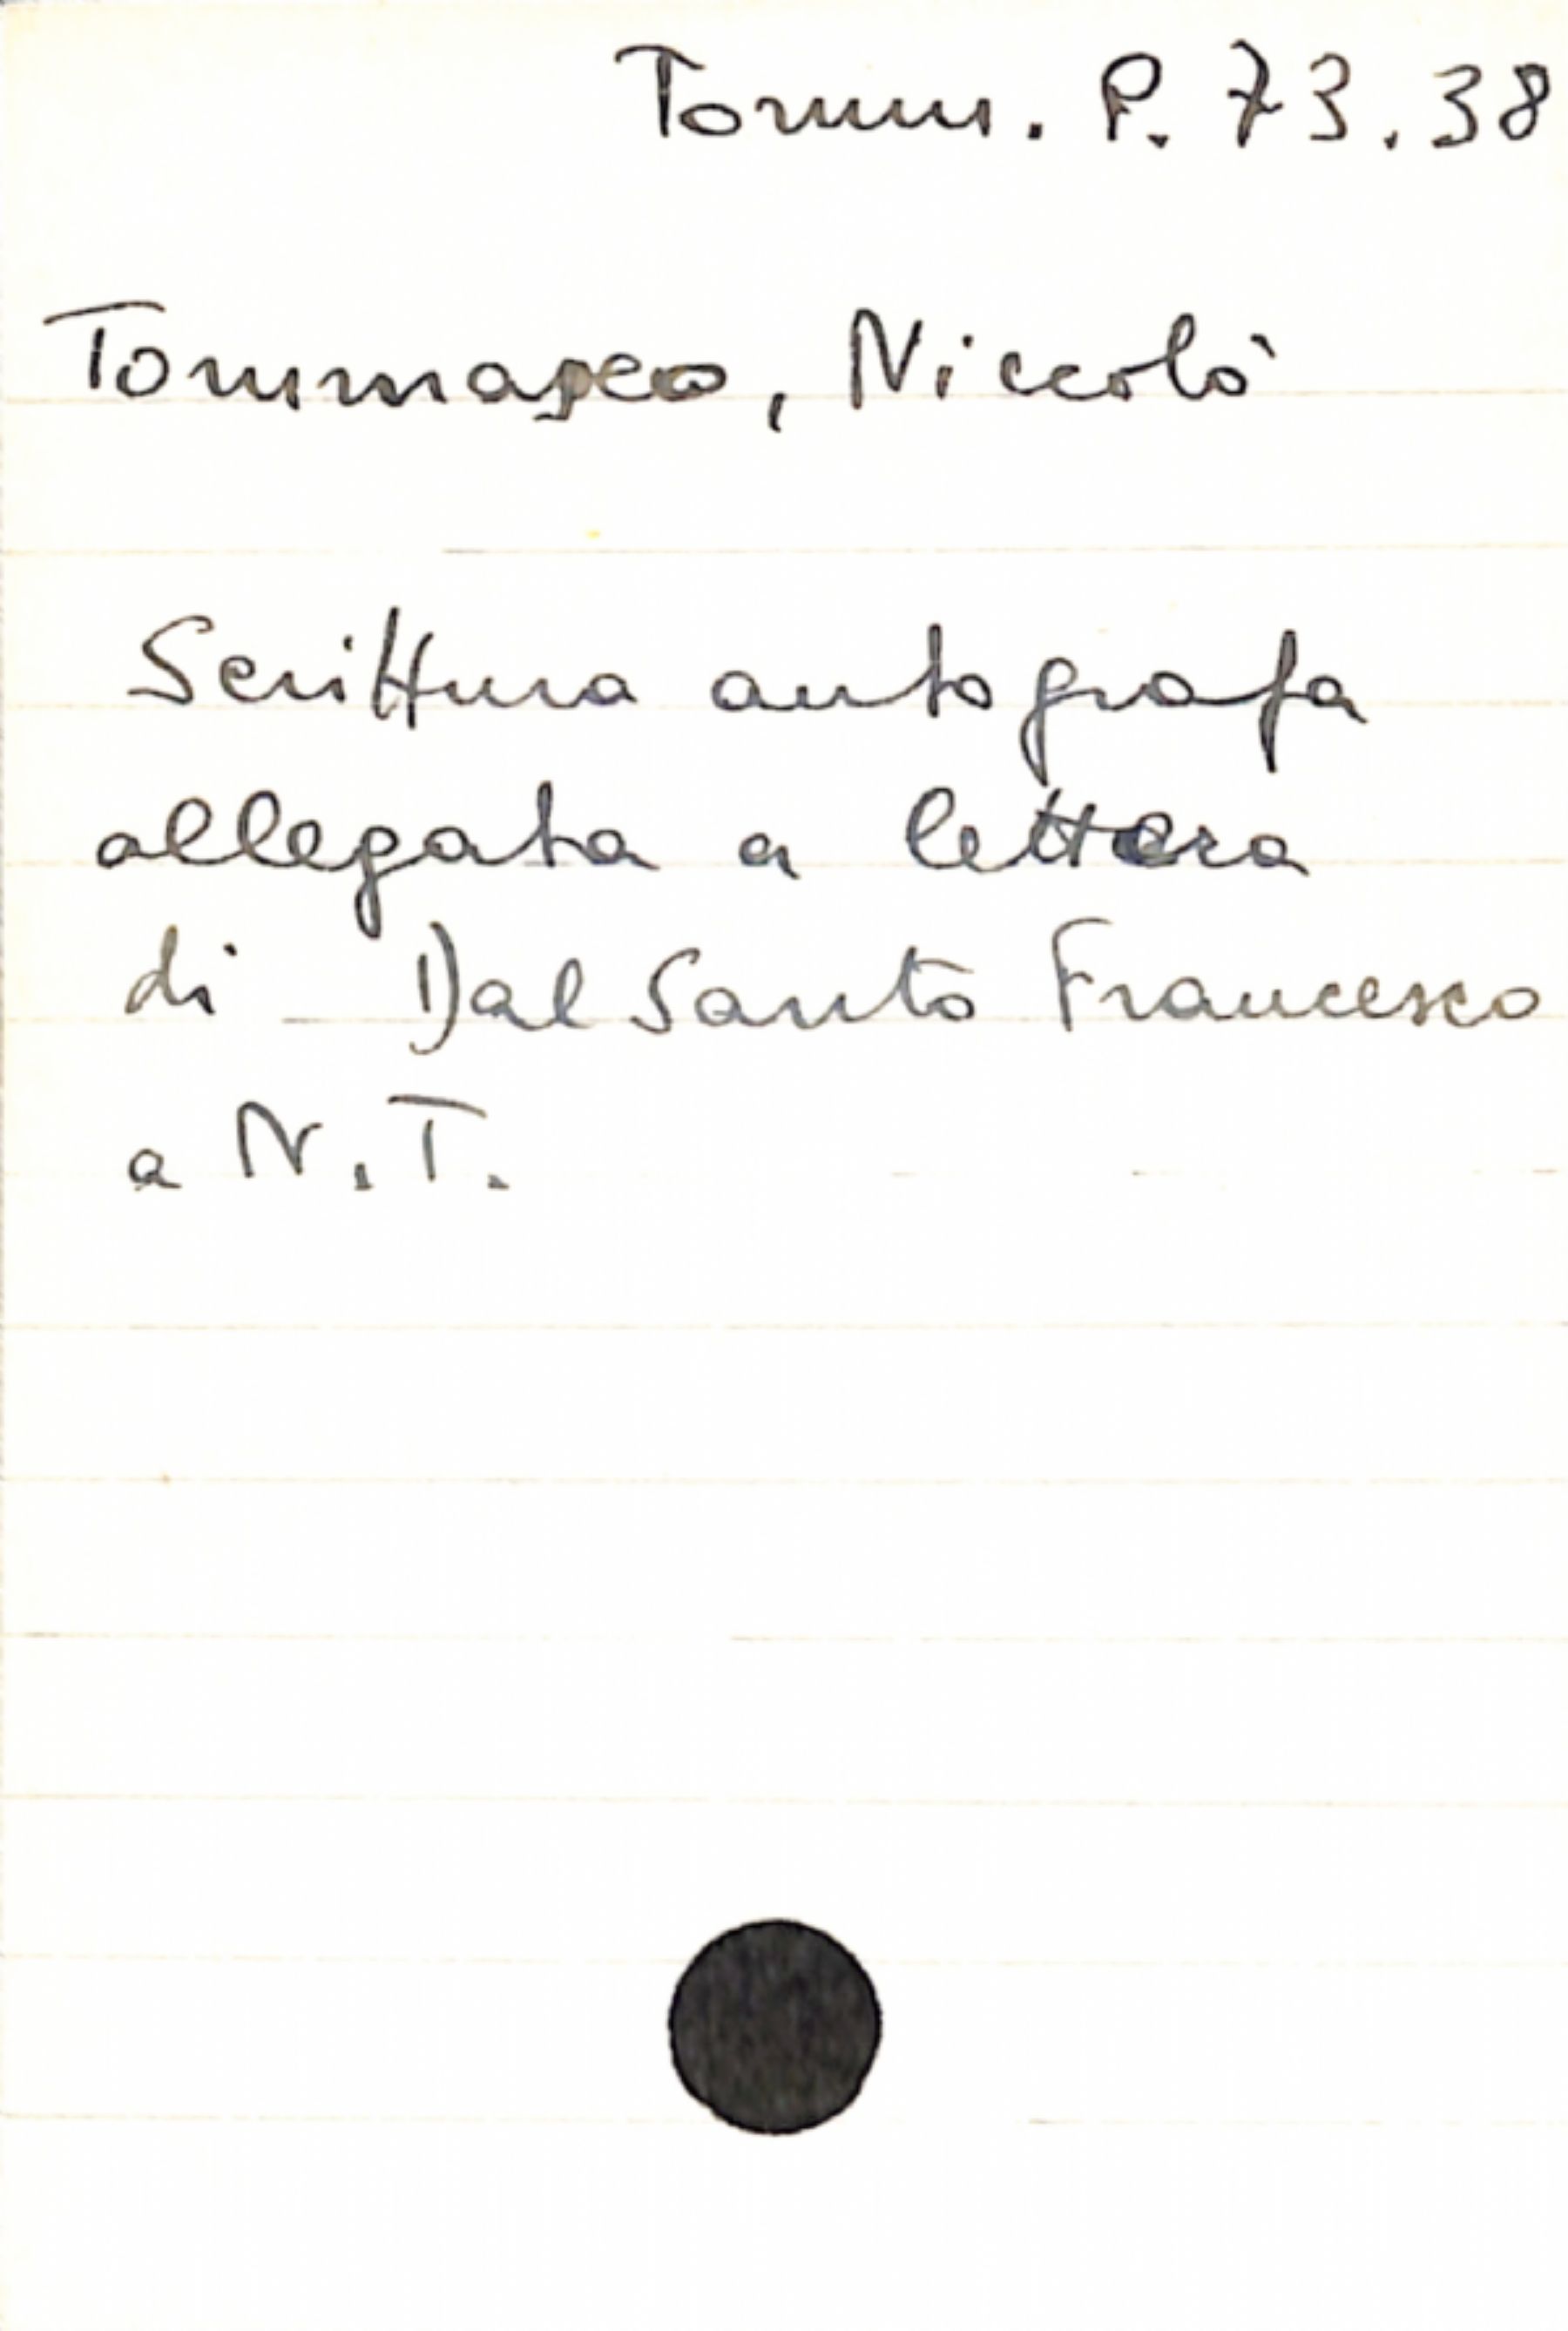 Tomm. P. 73.38
Tommaseo, Niccolò
Scrittura autografa
allegata a lettera
di Dal Santo Francesco
a N. T.